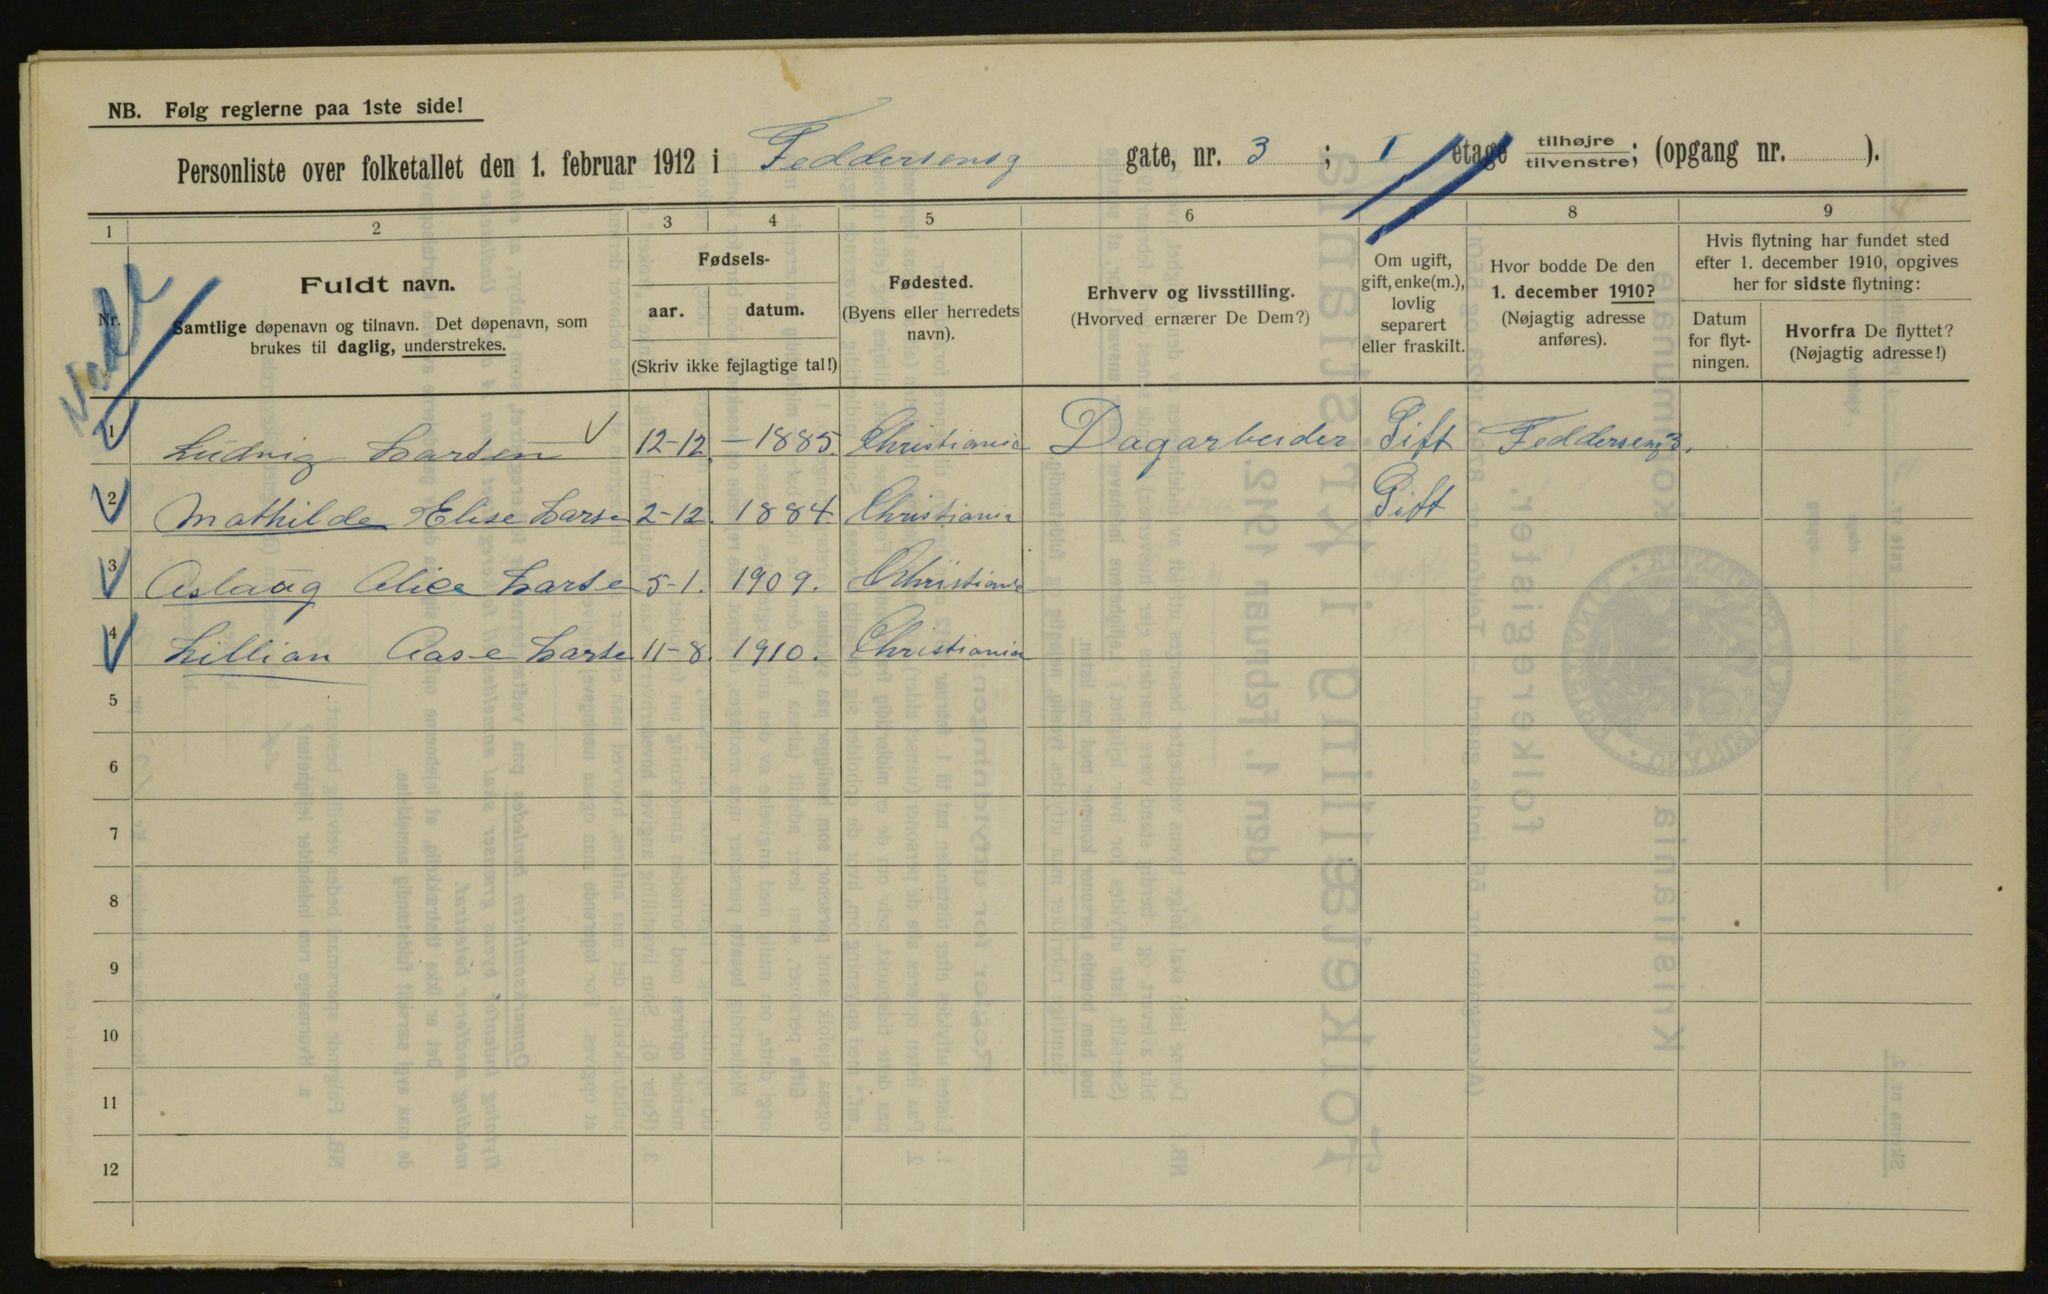 NB. Følg reglerne paa 1ste side!
Personliste over folketallet den 1. februar 1912 i Feddersensg gate, nr. 3 ; I etage tilhøjre tilvenstre; (opgang nr. ).
1 2 3 4 5 6 7 8 9
Nr.
Fuldt navn.
Samtlige døpenavn og tilnavn. Det døpenavn, som
brukes til daglig, understrekes.
Fødsels-
aar. datum.
(Skriv ikke fejlagtige tal!)
Fødested.
(Byens eller herredets
navn).
Erhverv og livsstilling.
(Hvorved ernærer De Dem?)
Om ugift,
gift, enke(m.),
lovlig
separert
eller fraskilt.
Hvor bodde De den
1. december 1910?
(Nøjagtig adresse
anføres).
Hvis flytning har fundet sted
efter 1. december 1910, opgives
her for sidste flytning:
Datum
for flyt-
ningen.
Hvorfra De flyttet?
(Nøjagtig adresse!)
1 Ludvig Larsen 12-12. - 1885. Christiania Dagarbeider Gift Feddersensg 3.
2 Mathilde Elise Larse 2-12. 1884. Christiania Gift
3 Aslaug Alice Larse 5-1. 1909. Christiania
4 Lillian Aase Larse 11-8. 1910. Christiania
5
6
7
8
9
10
11
12